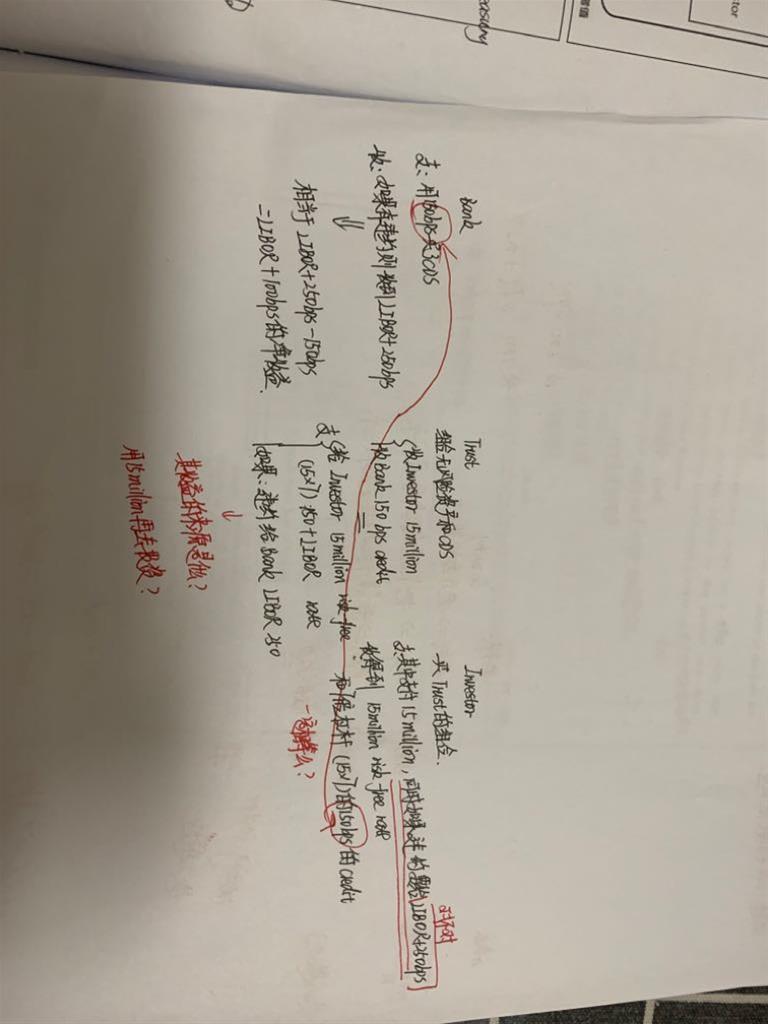 Bank
支：用150bps买CDS
收：如果有违约则收到LIBOR+250bps
⇓
相当于LIBOR+250bps-150bps
=LIBOR+100bps的净收益.
Trust
组合无风险资产和CDS
收Investor 15million
收Bank 150bps credit
支
给Investor 15million risk-free
(15×7) 150+LIBOR rate
如果:违约给Bank LIBOR 250
↓
其收益的来源是什么?
用15million再去投资?
Investor
买Trust的组合.
支:其中支付15million,同时如果违约要给LIBOR+250bps
对不对
收:得到15million risk-free rate
和7倍杠杆(15×7)的150bps的credit
一定相等么?
tor